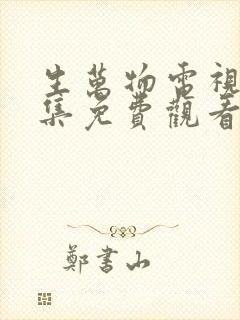 生萬物電視
集免費觀看
鄭書山